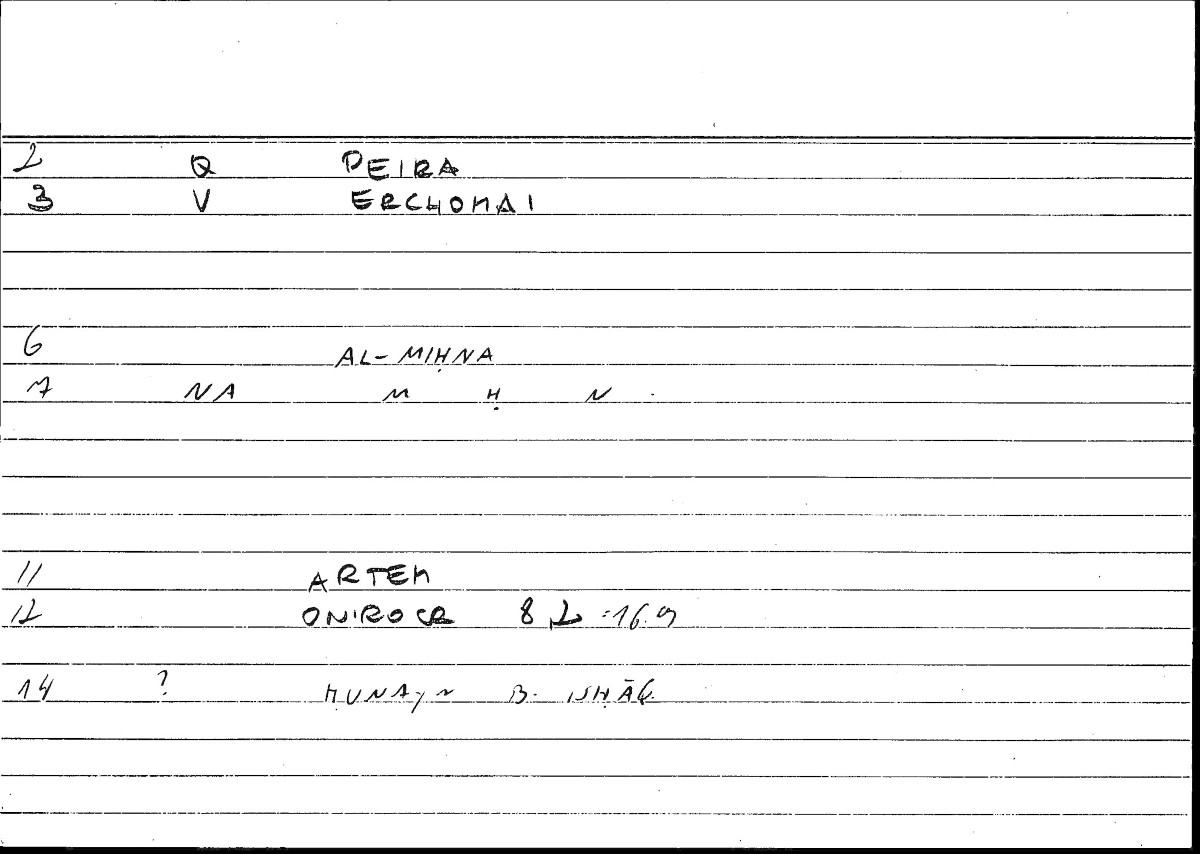 2 Q PEIRA
3 V ERCHOMAI
6 AL-MIḤNA
7 NA M Ḥ N
11 ARTEM
12 ONIROCR 8,2 -16.9
14 ? ḤUNAYN B. ISḤĀQ